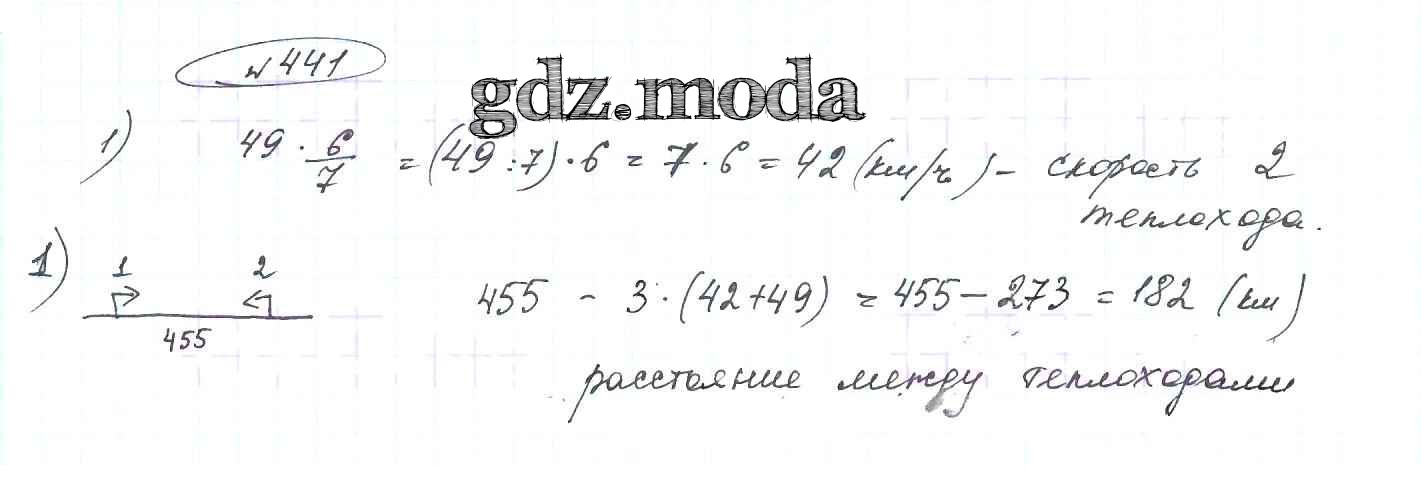 № 441
gdz.moda
1) 49 · 6/7 = (49 : 7) · 6 = 7 · 6 = 42 (км/ч) – скорость 2
теплохода.
1) 1 2
455 - 3 · (42+49) = 455 – 273 = 182 (км)
455
расстояние между теплоходами